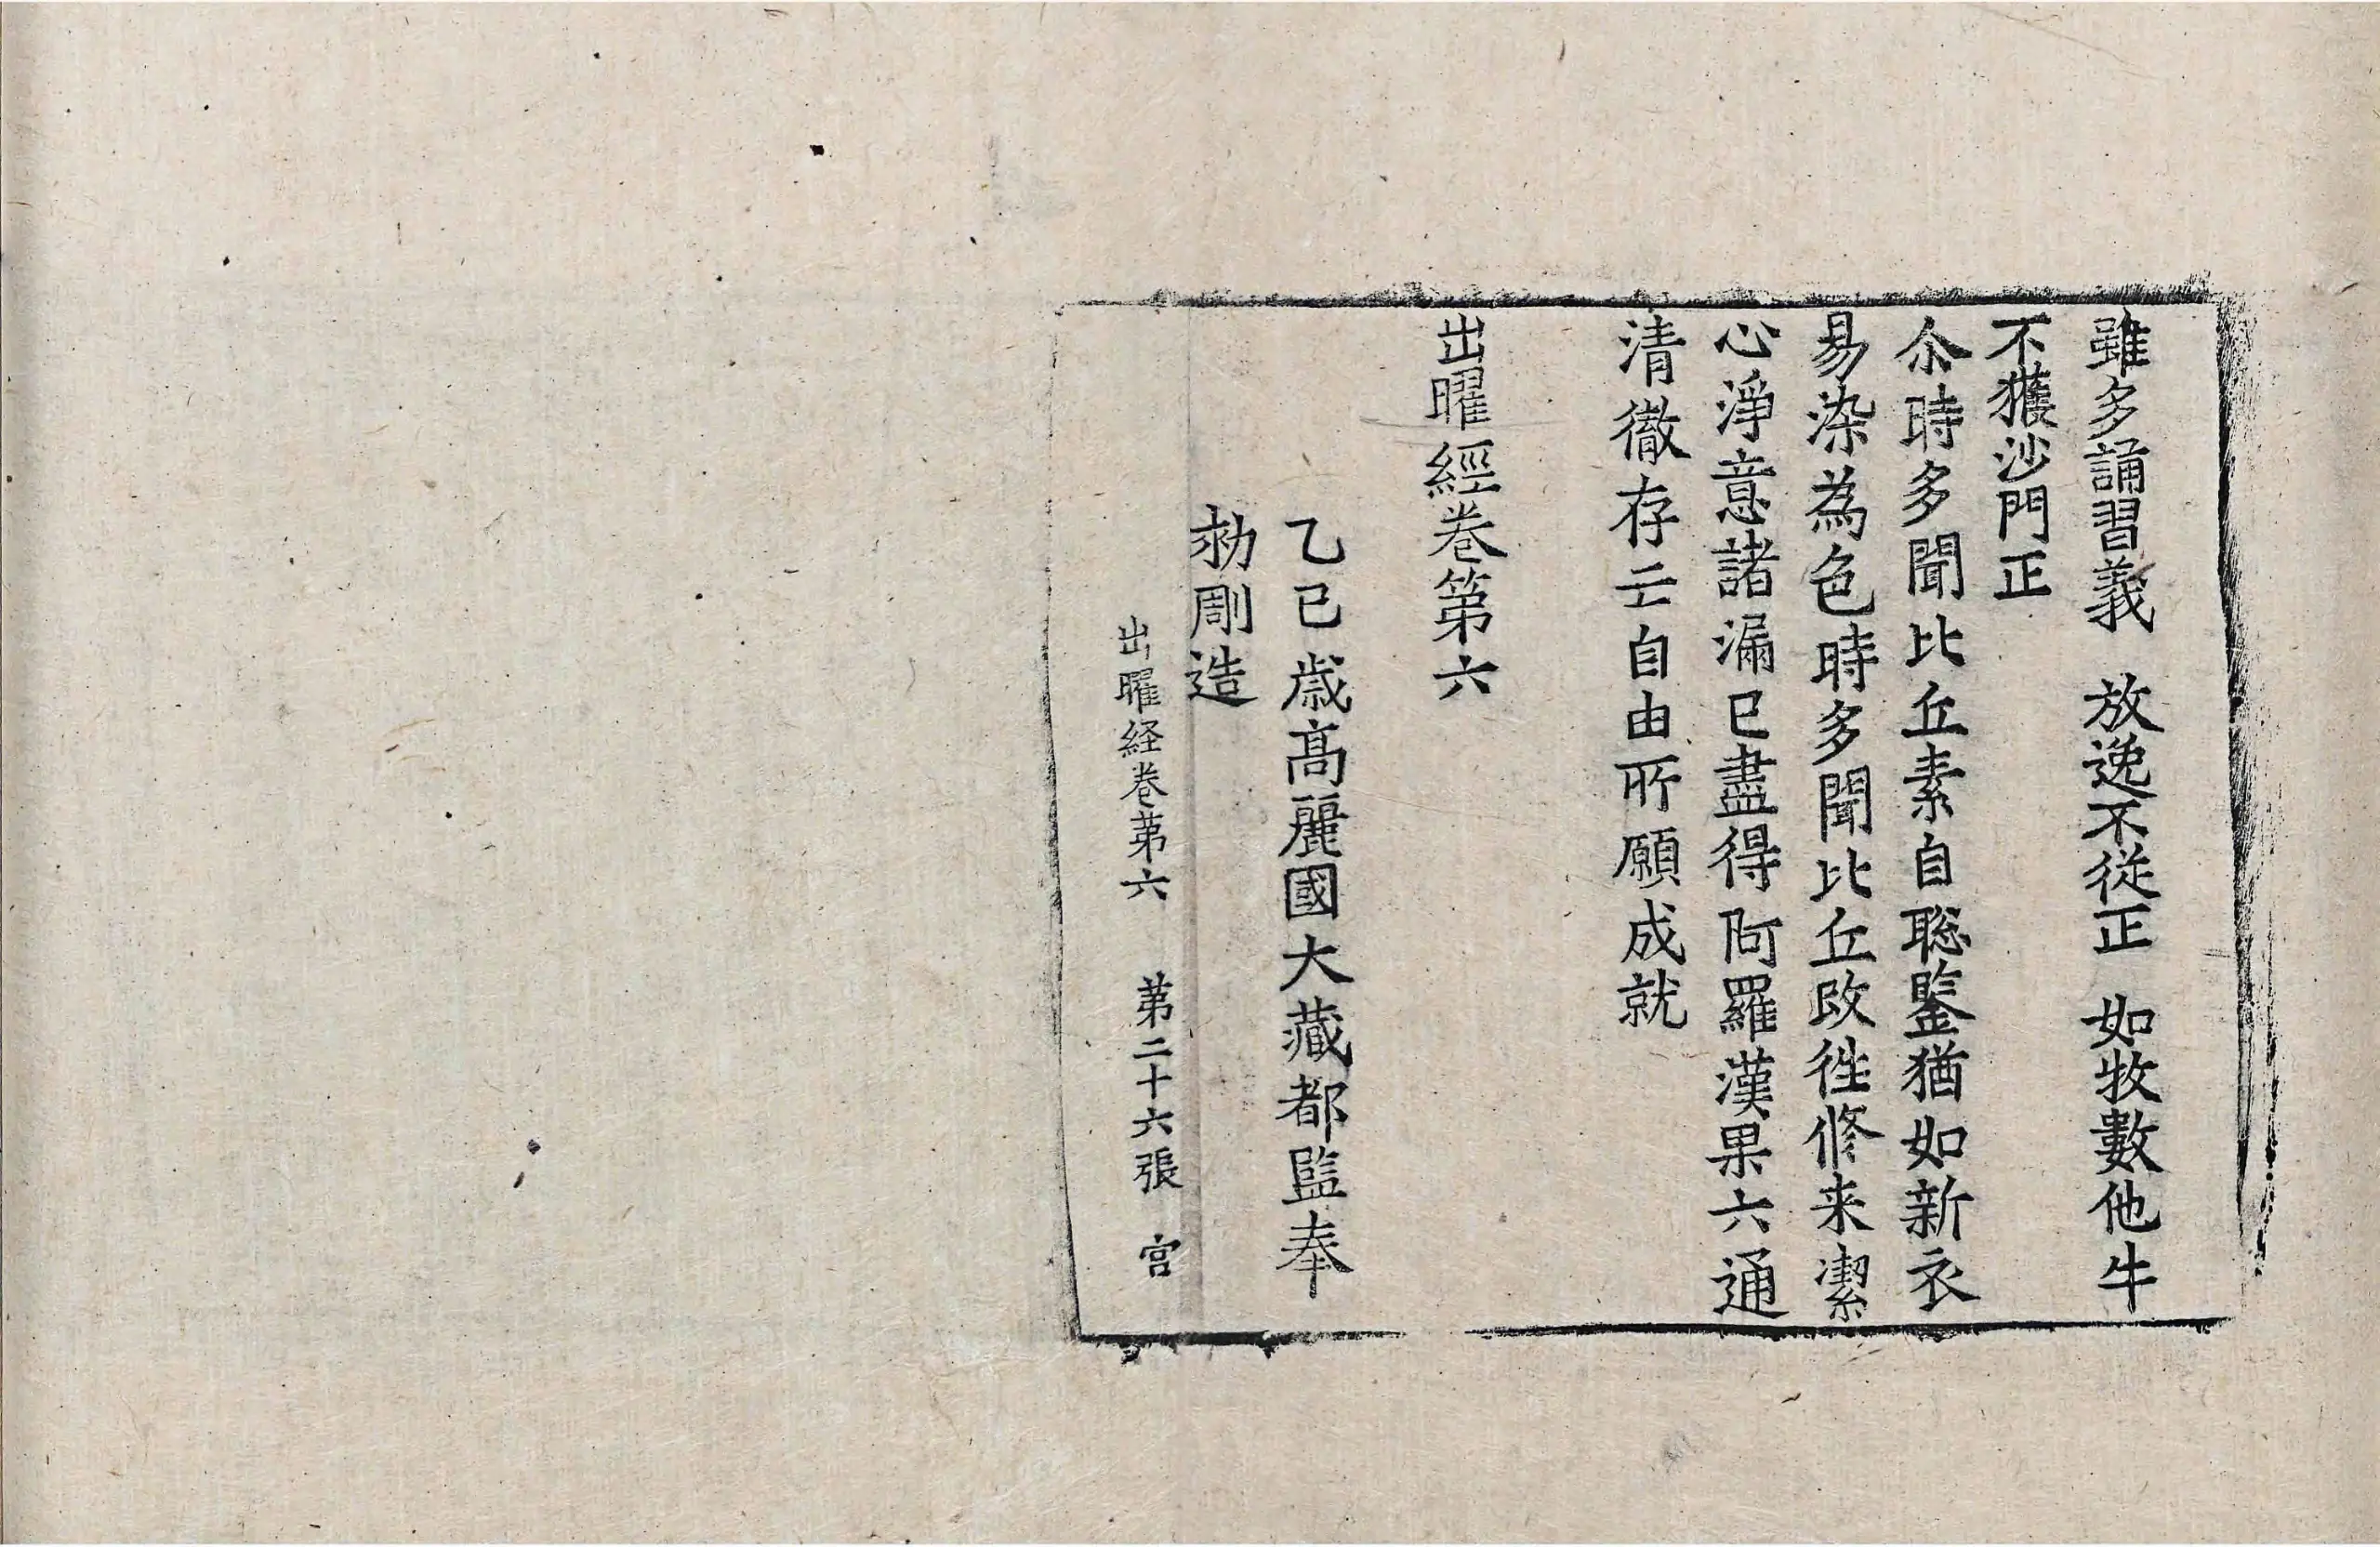 雖多誦習義 放逸不從正 如牧數他牛
不獲沙門正
尒時多聞比丘素自聡鑒猶如新衣
易染為色時多聞比丘改徃修来潔
心淨意諸漏已盡得阿羅漢果六通
清徹存亡自由所願成就
出曜經卷第六
乙巳歳髙麗國大藏都監奉
勑彫造
出曜経卷苐六 苐二十六張 宫